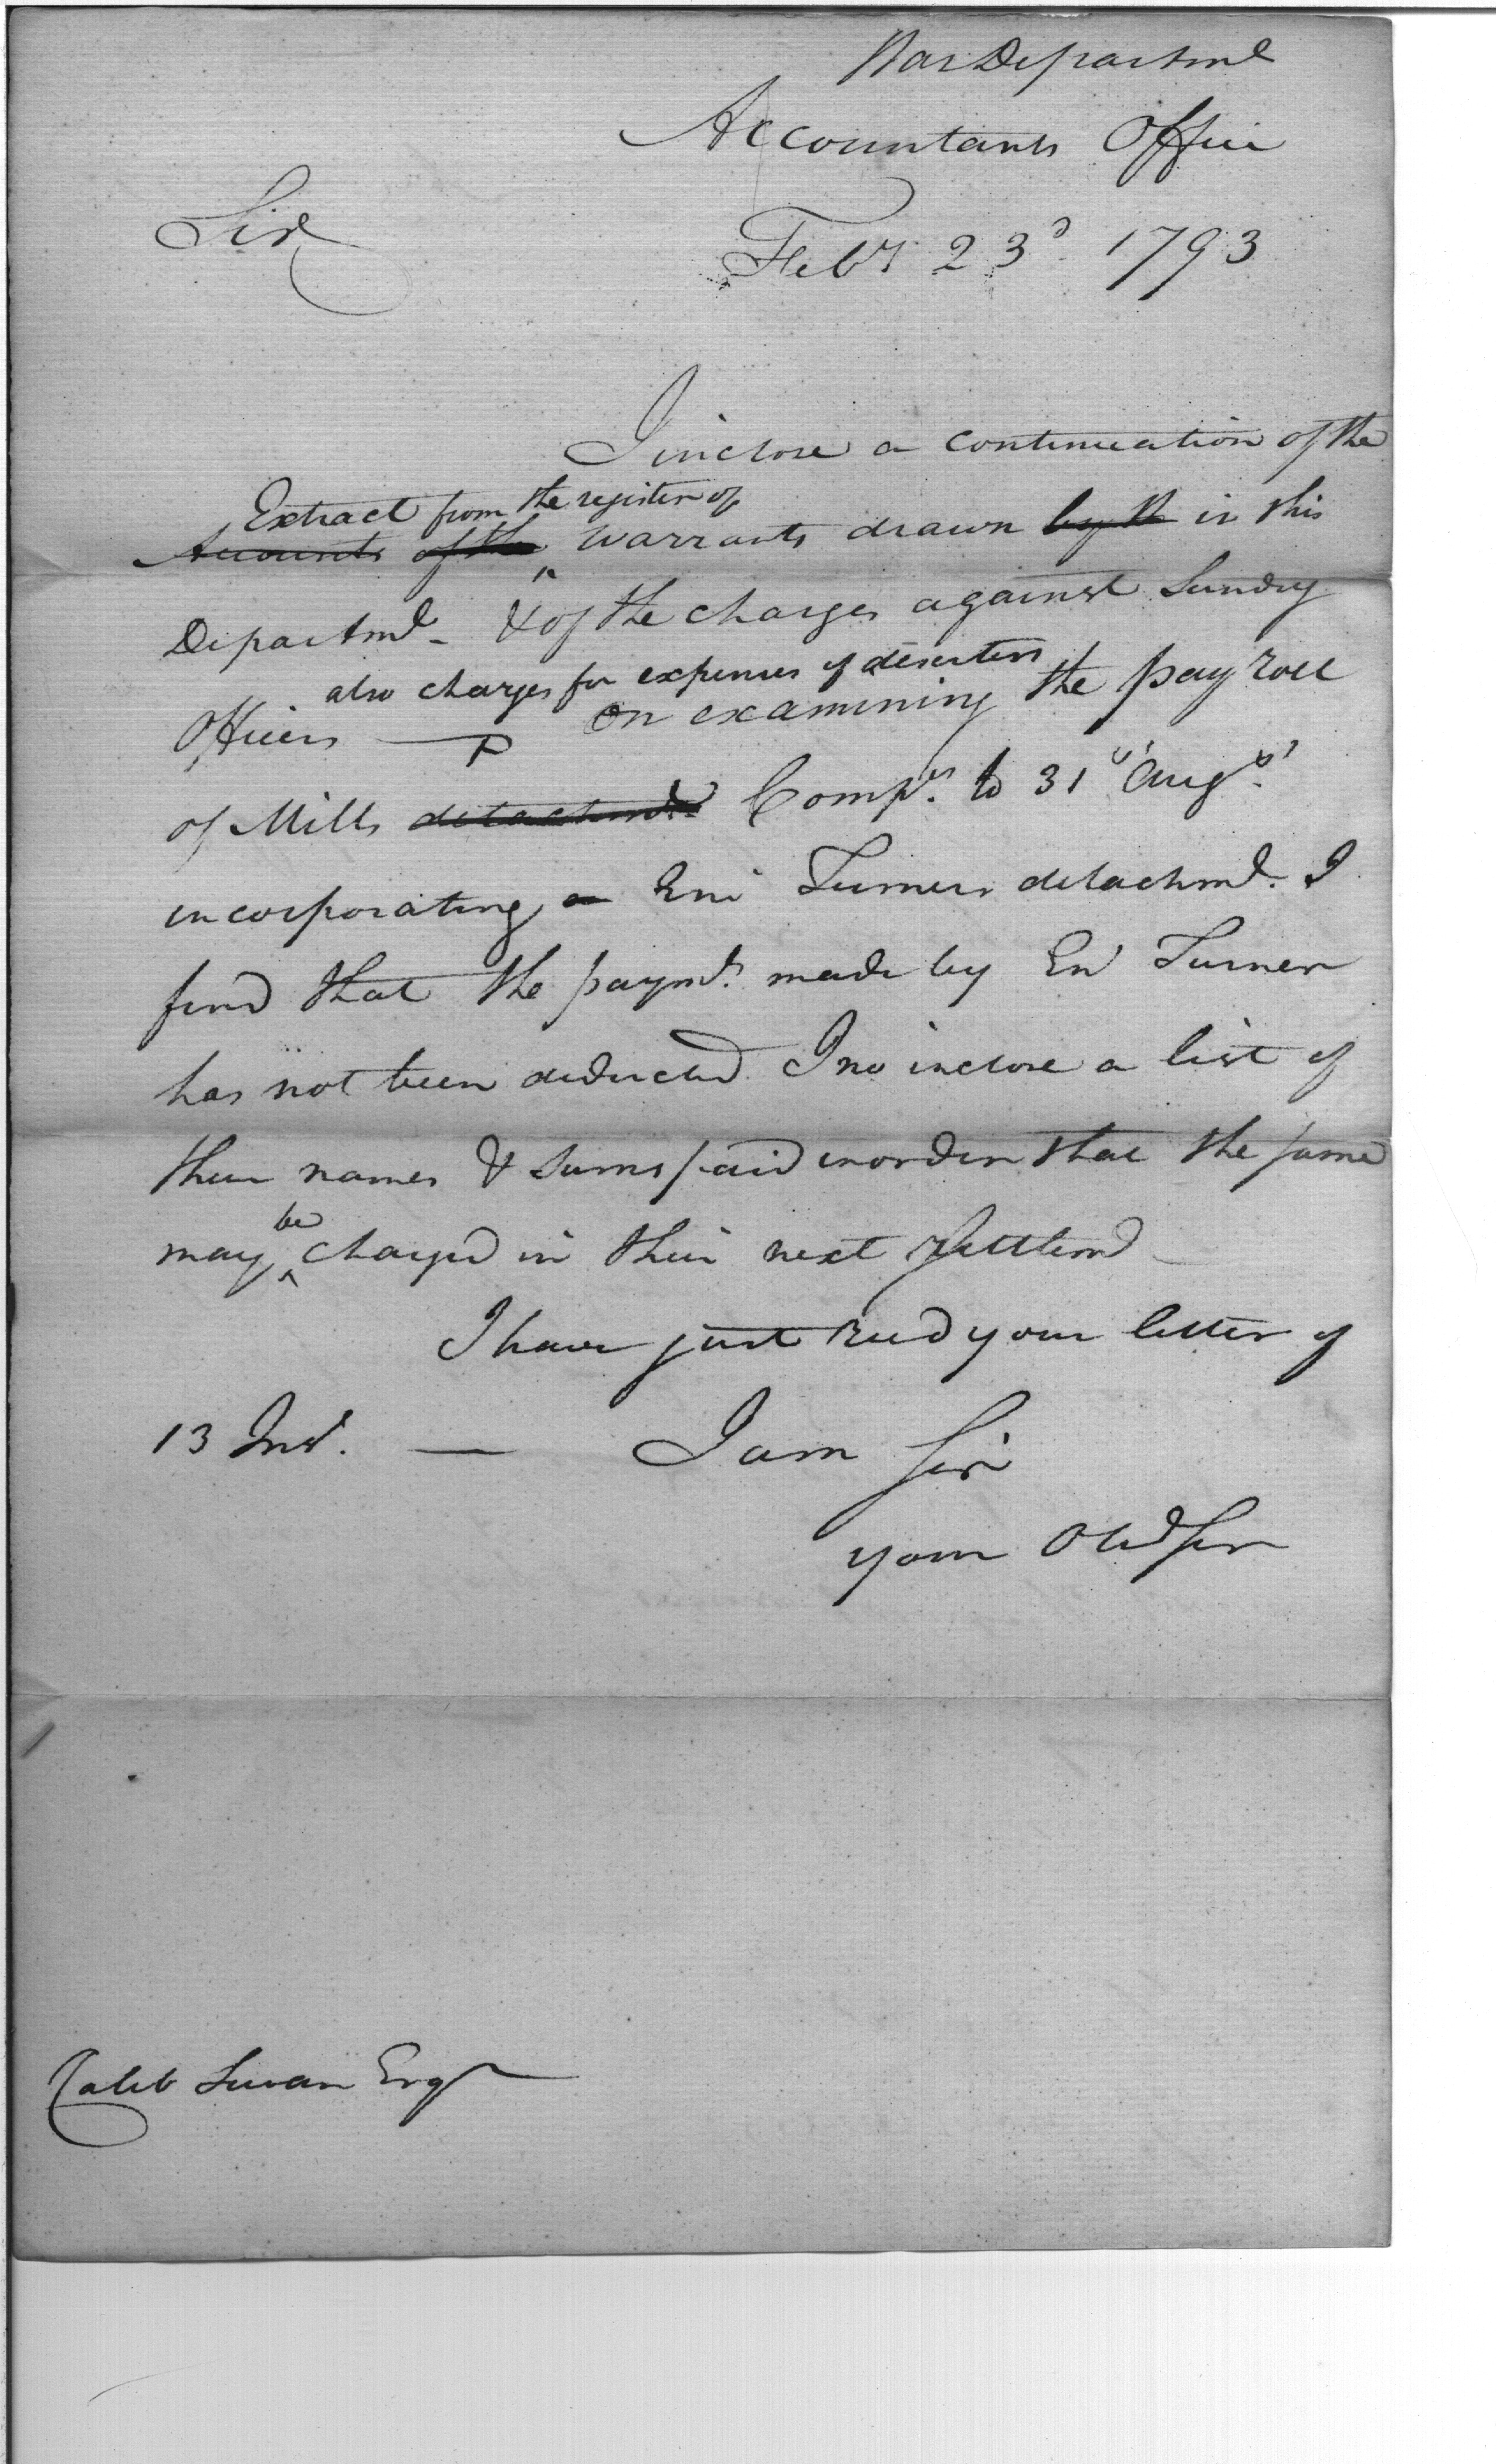 War Departmt
Accountants Office
Sir
Feby 23d 1793
I inclose a continuation of the
Extract from the register of
Accounts of the warrants drawn by th in this
Departmt & of the charges against Sundry
also charges for expenses of deserters
Officers — On examining the pay roll
of Mills detachmt Compy. to 31st Augt.
incorporating a Ens Turners detachmt. I
find that the paymts made by En Turner
has not been deducted I no inclose a list of
their names & sums paid in order that the same
be
may charged in their next Settlemt
I have just recd your letter of
13 Inst. — I am Sir
your Obed Ser
Caleb Swan Esqr